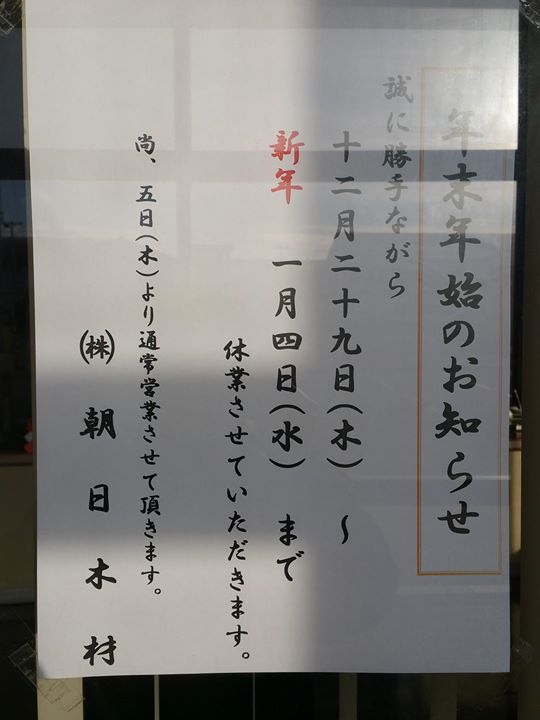 年末年始のお知らせ
誠に勝手ながら
十二月二十九日(木) ～
新年 一月四日(水) まで
休業させていただきます。
尚、五日(木)より通常営業させて頂きます。
㈱ 朝日木材